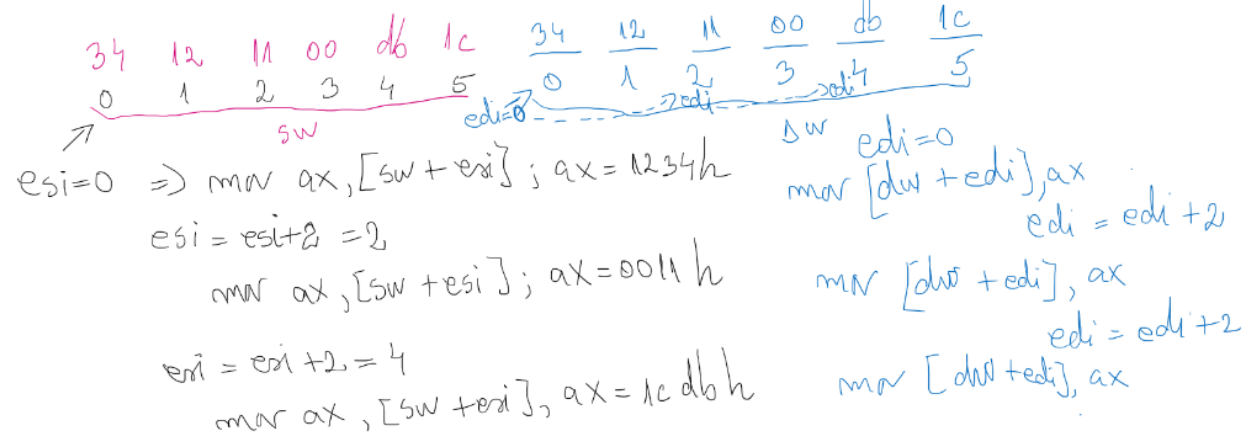 34 12 11 00 db 1c
0 1 2 3 4 5
sw
esi=0 => mov ax,[sw+esi]; ax=1234h
esi=esi+2=2
mov ax,[sw+esi]; ax=0011h
esi=esi+2=4
mov ax,[sw+esi], ax=1cdbh
34 12 11 00 db 1c
0 1 2 3 4 5
edi=0 edi edi
dw
edi=0
mov [dw+edi],ax
edi=edi+2
mov [dw+edi], ax
edi=edi+2
mov [dw+edi], ax